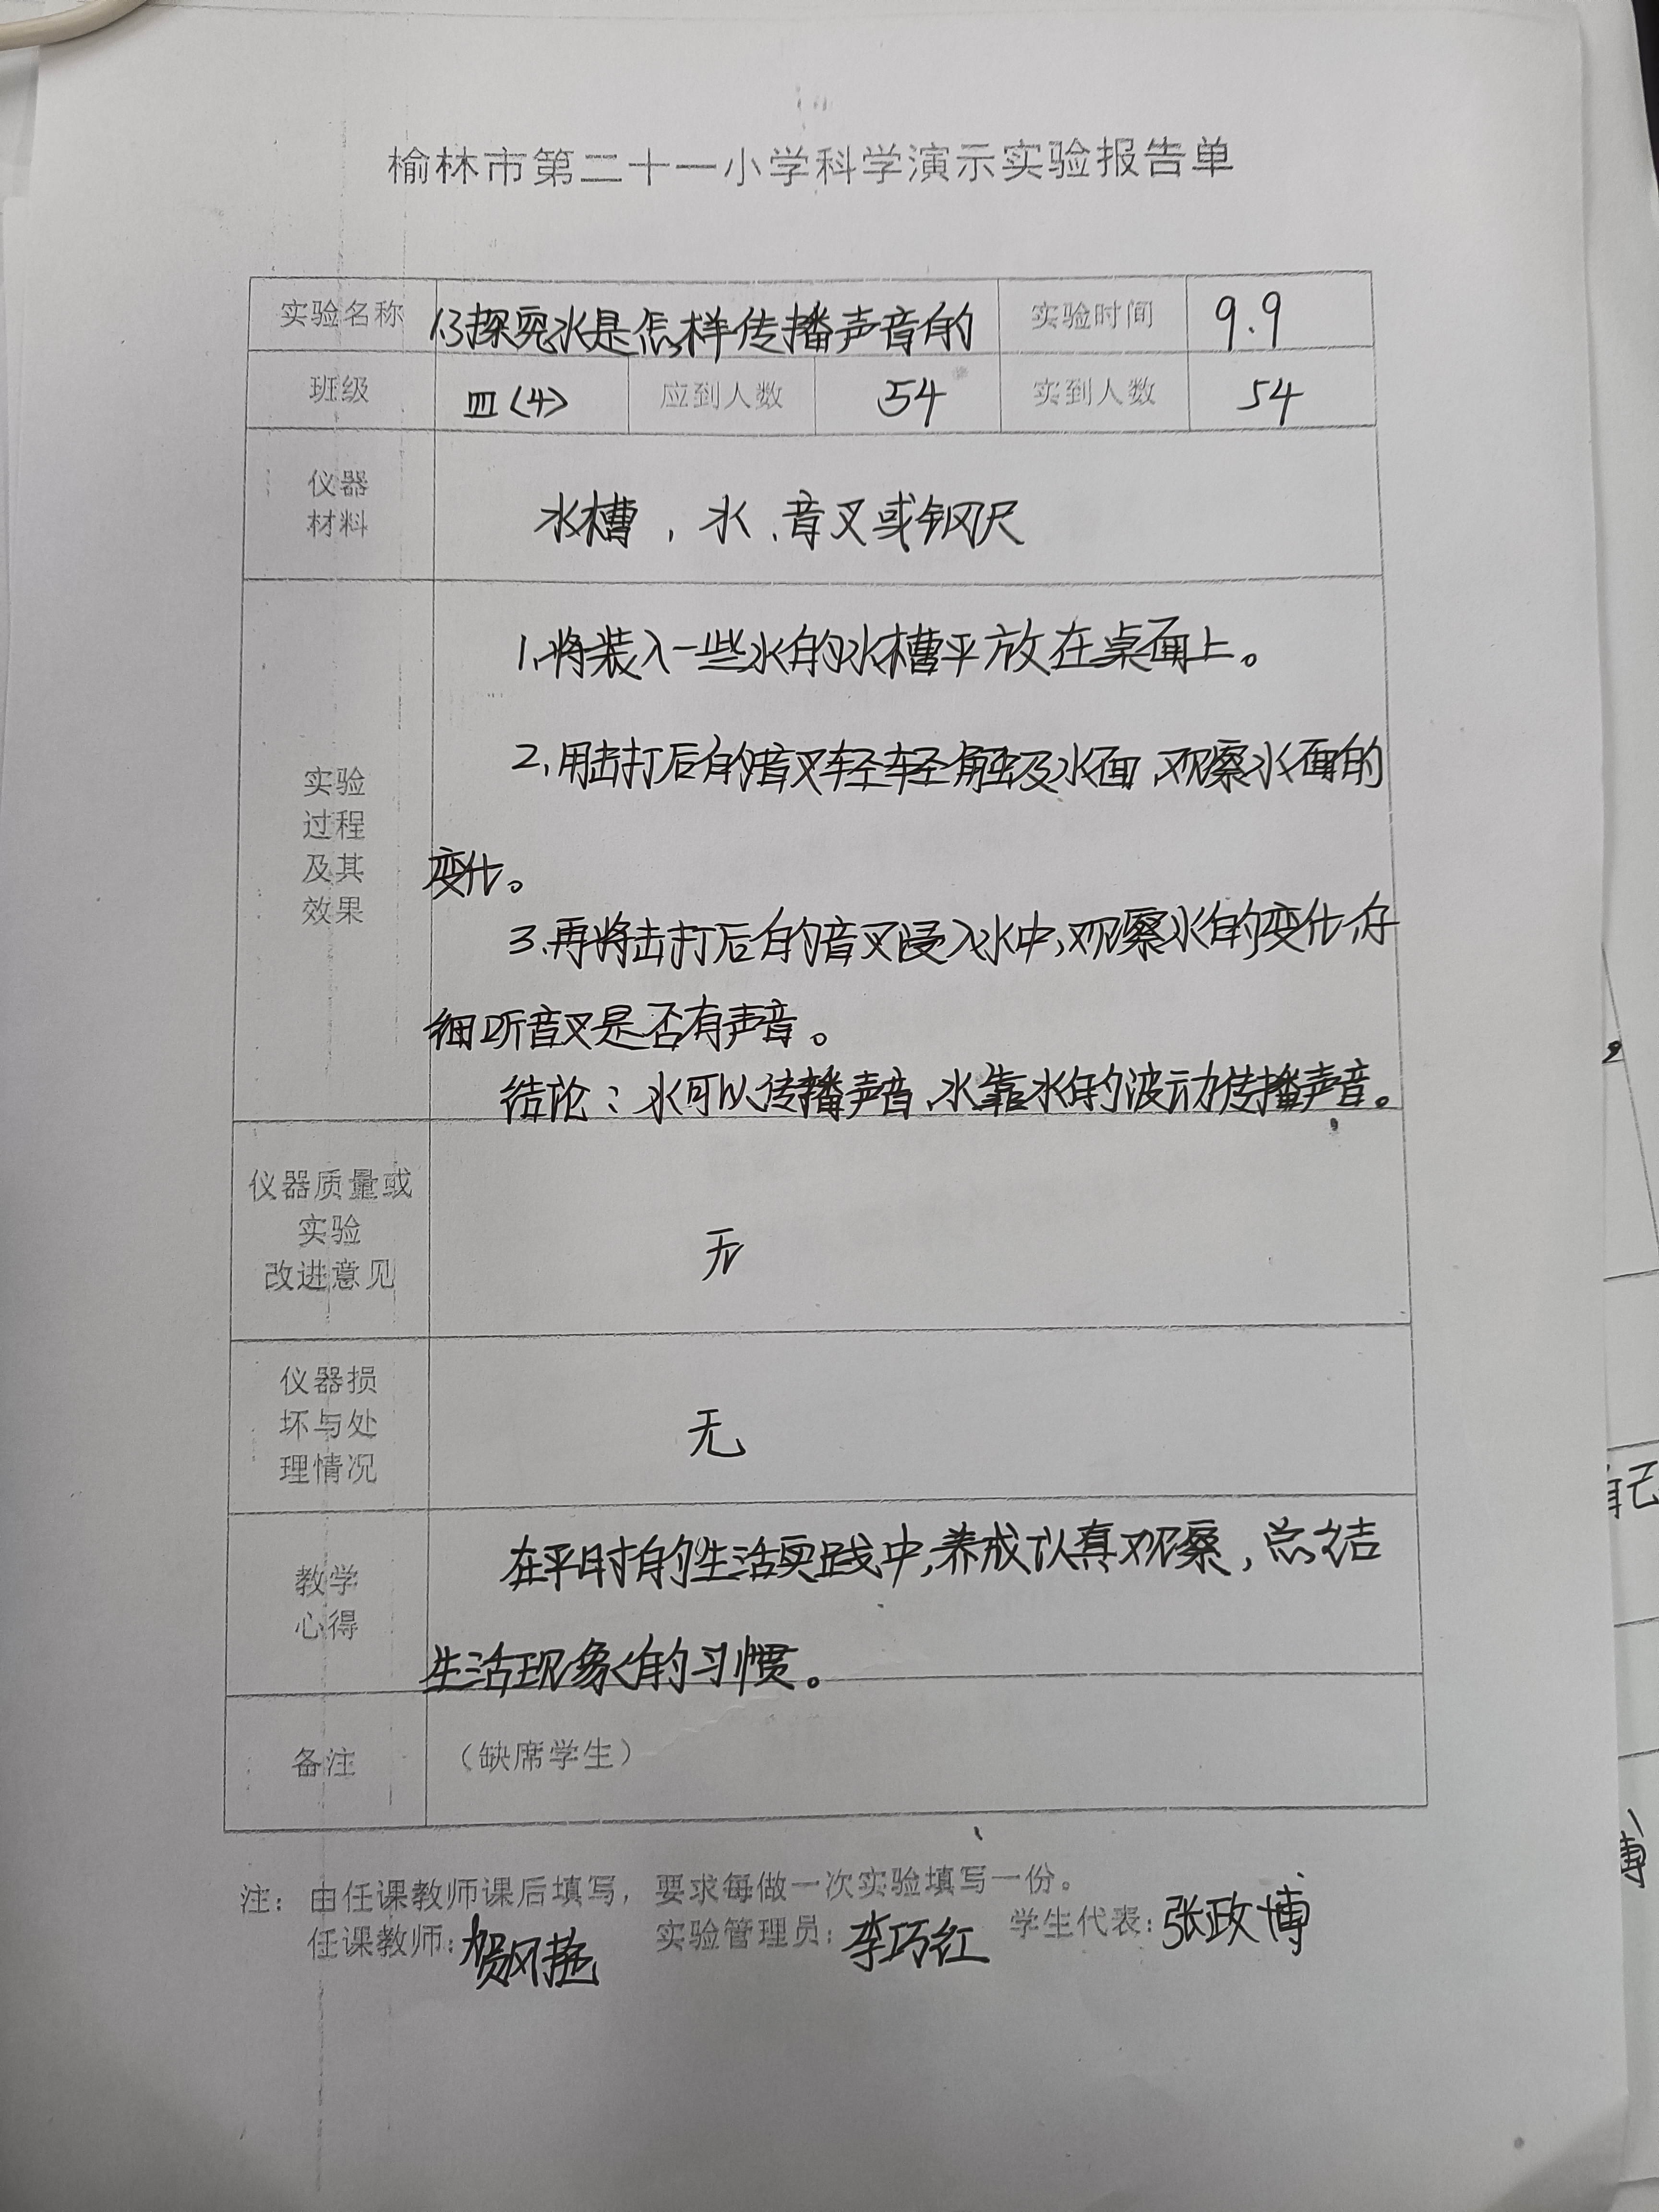 榆林市第二十一小学科学演示实验报告单
实验名称 1.3探究水是怎样传播声音的 实验时间 9.9
班级 四(4) 应到人数 54 实到人数 54
仪器
材料
水槽，水、音叉或钢尺
实验
过程
及其
效果
1.将装入一些水的水槽平放在桌面上。
2.用击打后的音叉轻轻触及水面,观察水面的
变化。
3.再将击打后的音叉浸入水中,观察水的变化,仔
细听音叉是否有声音。
结论：水可以传播声音,水靠水的波动传播声音。
仪器质量或
实验
改进意见
无
仪器损
坏与处
理情况
无
教学
心得
在平时的生活实践中,养成认真观察,总结
生活现象的习惯。
备注 （缺席学生）
注：由任课教师课后填写，要求每做一次实验填写一份。
任课教师: 贺风 实验管理员: 李巧红 学生代表: 张政博
自己
博